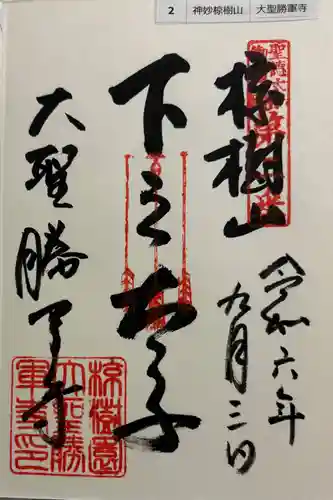 2 神妙椋樹山 大聖勝軍寺
椋樹山
令和六年
九月三日
下之太子
大聖勝軍寺
椋樹山
大聖勝
軍寺印